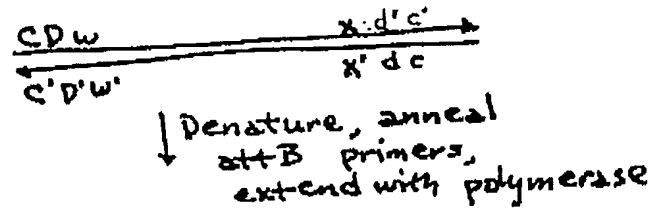 C D w x d' c'
C' D' w' x' d c
Denature, anneal
attB primers,
extend with polymerase